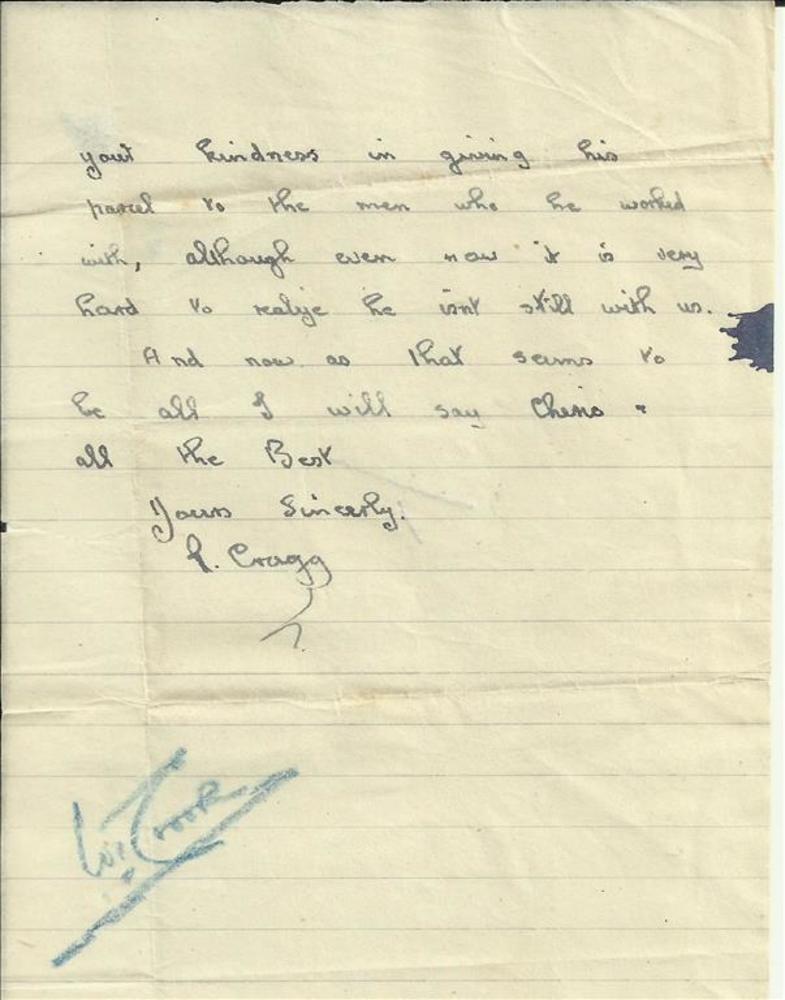 your kindness in giving his
parcel to the men who he worked
with, although even now it is very
hard to realize he isnt still with us.
And now as that seems to
be all I will say Cherio &
all the Best
Yours Sincerly.
Cragg
Crook